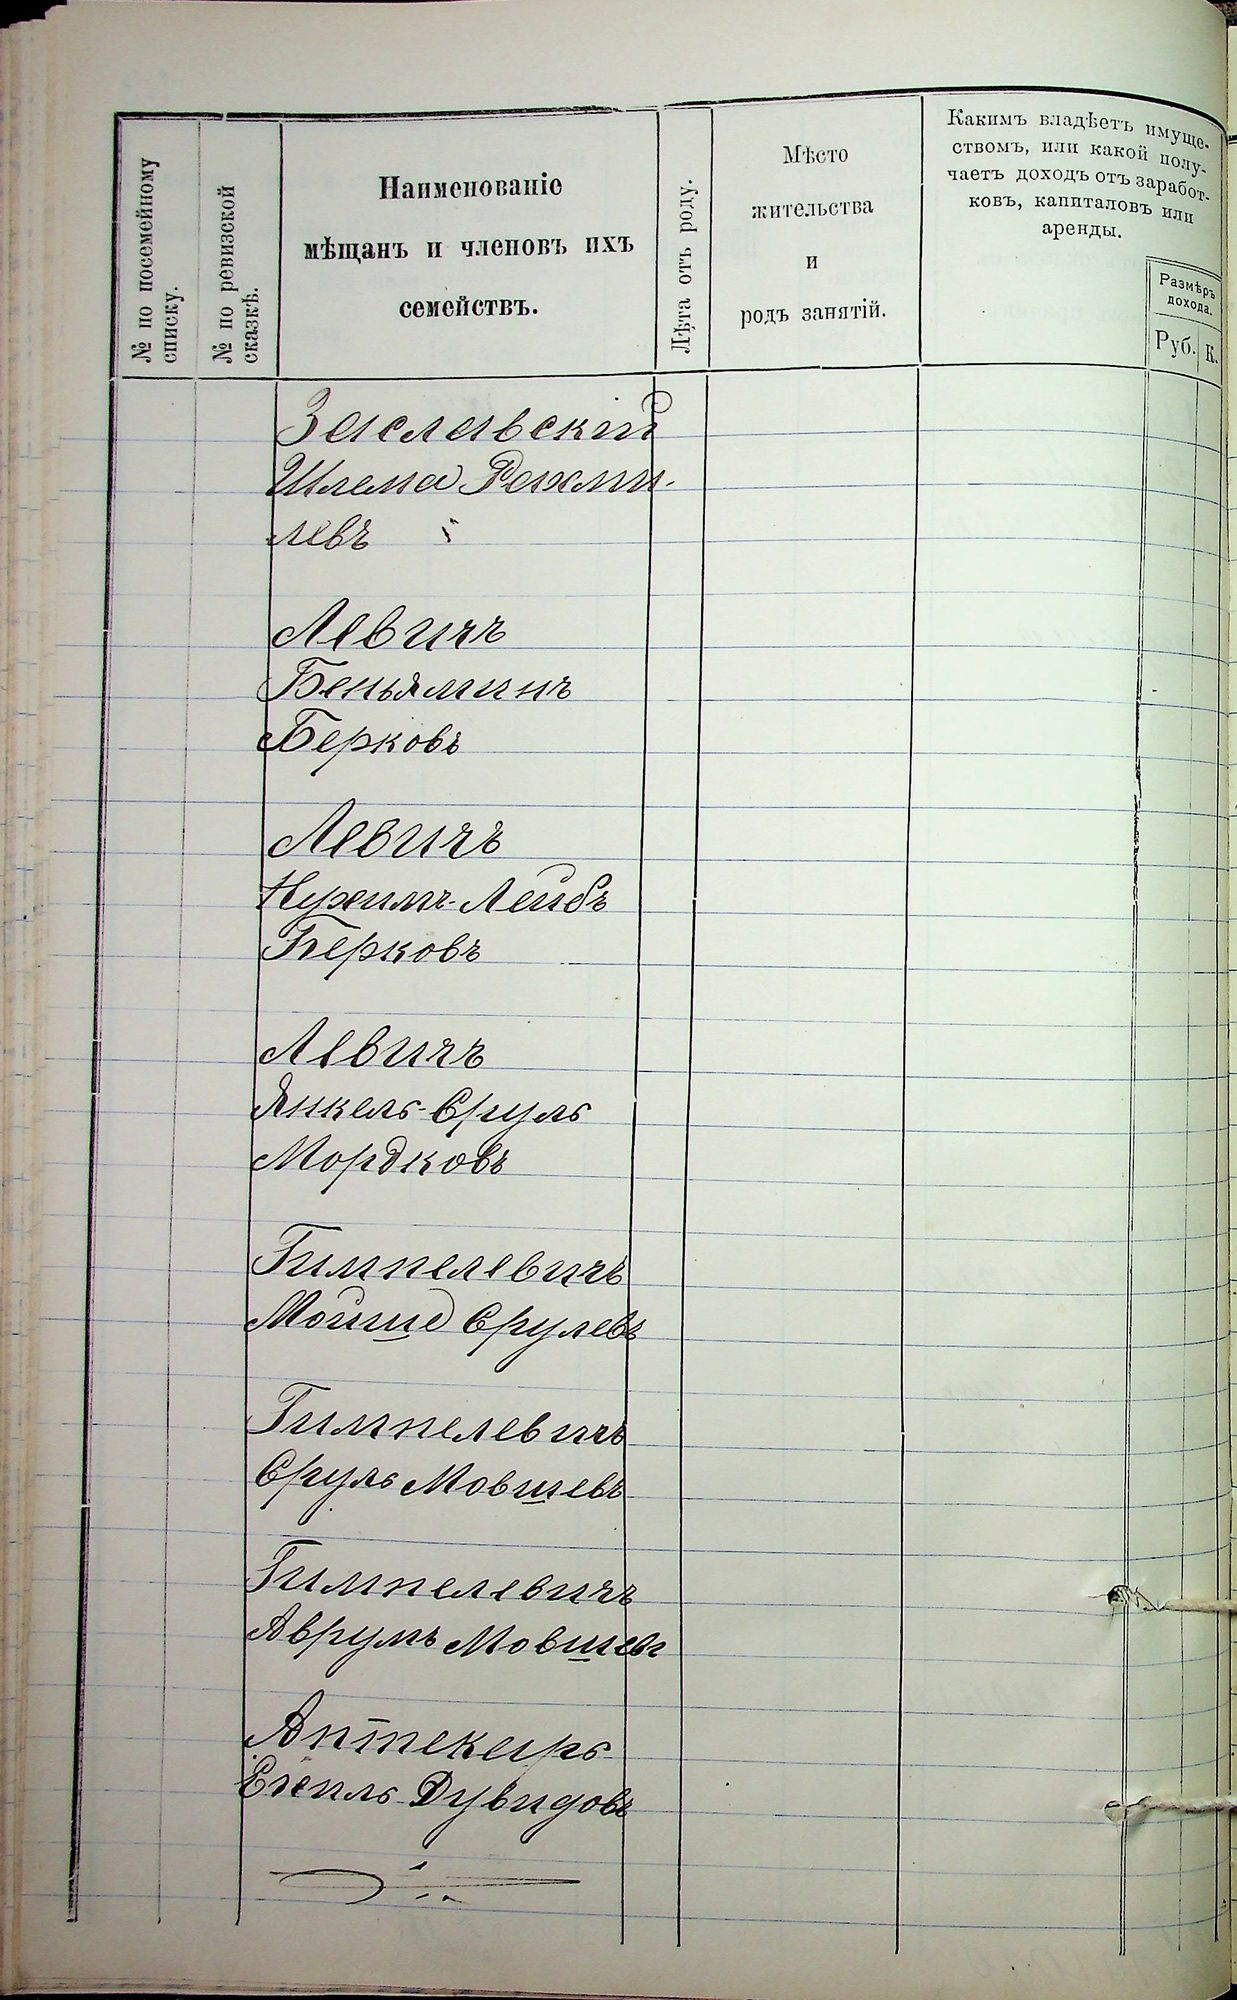 № по посемейному
списку.
№ по ревизской
сказкѣ.
Наименованіе
мѣщанъ и членовъ ихъ
семействъ.
Лѣта отъ роду.
Мѣсто
жительства
и
родъ занятій.
Какимъ владѣетъ имуще-
ствомъ, или какой полу-
чаетъ доходъ отъ заработ-
ковъ, капиталовъ или
аренды.
Размѣръ
дохода.
Руб. К.
Заславскій
Шлема Рахми-
левъ
Левичъ
Беньяминъ
Берковъ
Левичъ
Нухимъ-Лейбъ
Берковъ
Левичъ
Янкель-Сруль
Мордковъ
Гимпелевичъ
Мойше Срулевъ
Гимпелевичъ
Сруль Мовшевъ
Гимпелевичъ
Аврумъ Мовшевъ
Аптекарь
Дувидовъ